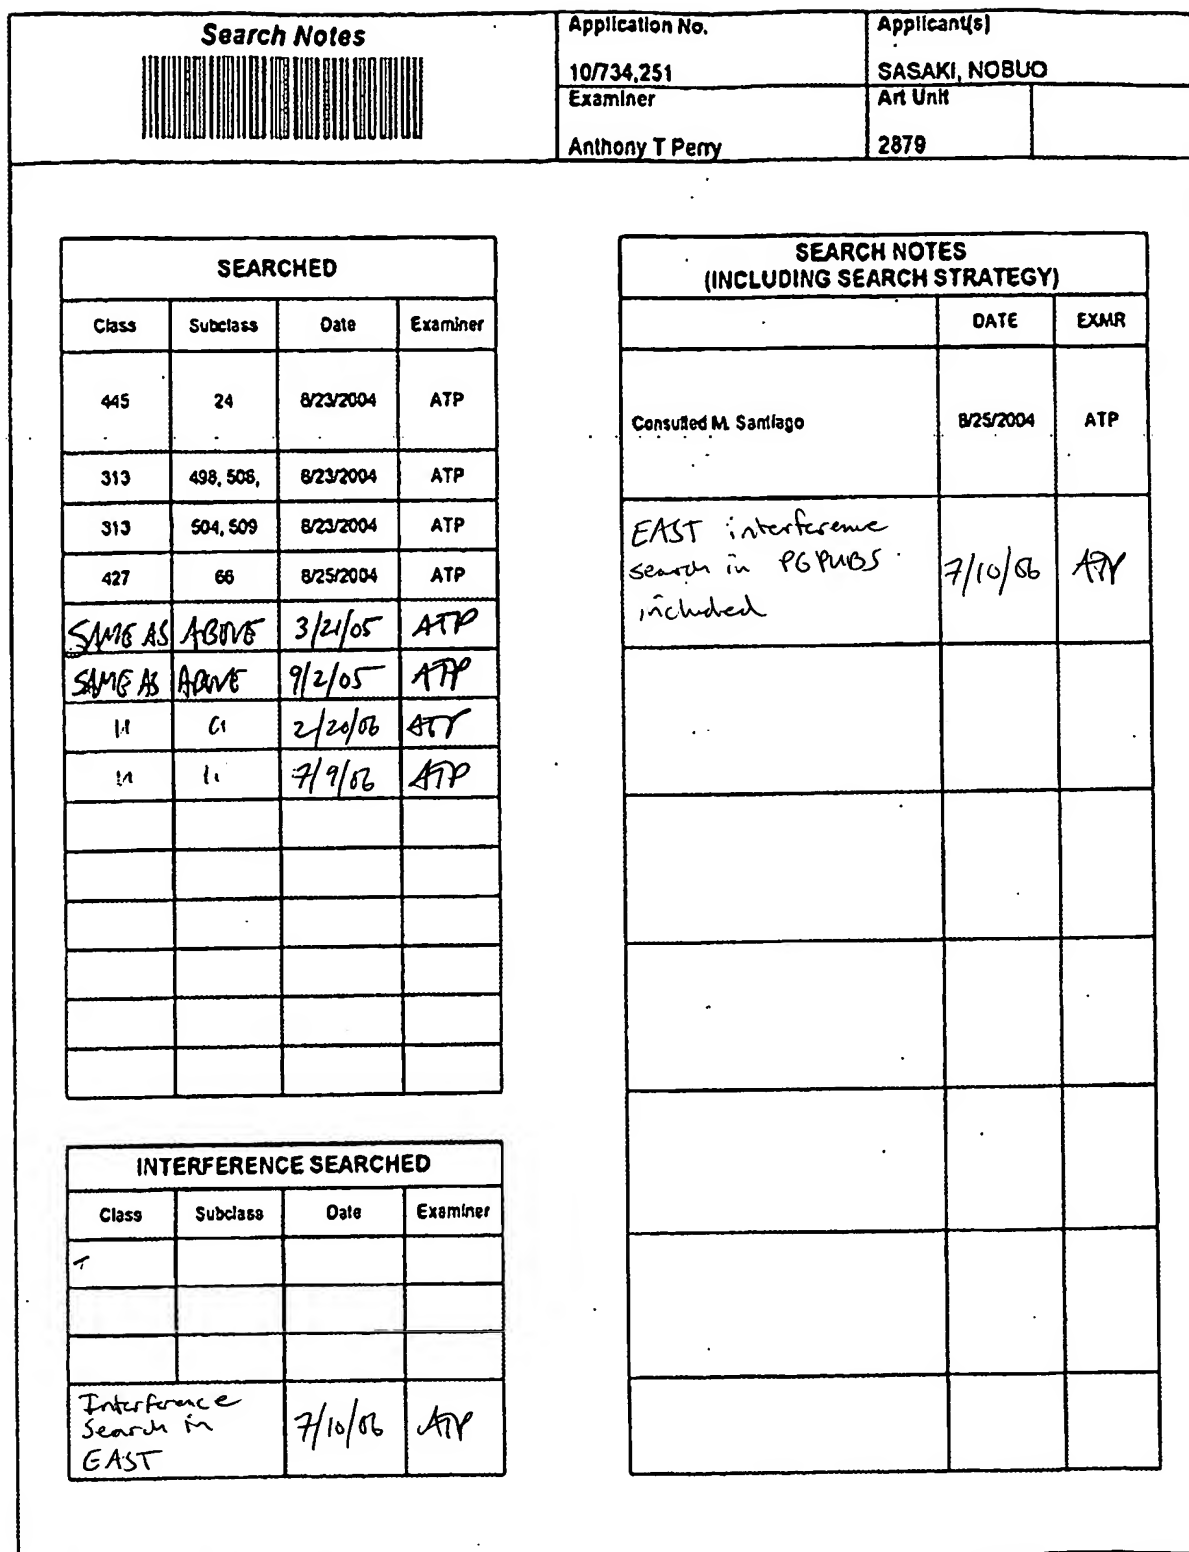 Search Notes
Application No.
Applicant(s)
10/734,251
SASAKI, NOBUO
Examiner
Art Unit
Anthony T Perry
2879
SEARCHED
Class Subclass Date Examiner
445 24 8/23/2004 ATP
313 498, 506, 8/23/2004 ATP
313 504, 509 8/23/2004 ATP
427 66 8/25/2004 ATP
SAME AS ABOVE 3/21/05 ATP
SAME AS ABOVE 9/2/05 ATP
" " 2/20/06 ATP
" " 7/9/06 ATP
INTERFERENCE SEARCHED
Class Subclass Date Examiner
Interference
Search in
EAST
7/10/06 ATP
SEARCH NOTES
(INCLUDING SEARCH STRATEGY)
DATE EXMR
Consulted M. Santiago 8/25/2004 ATP
EAST interference
search in PGPUBS
included
7/10/06 ATP